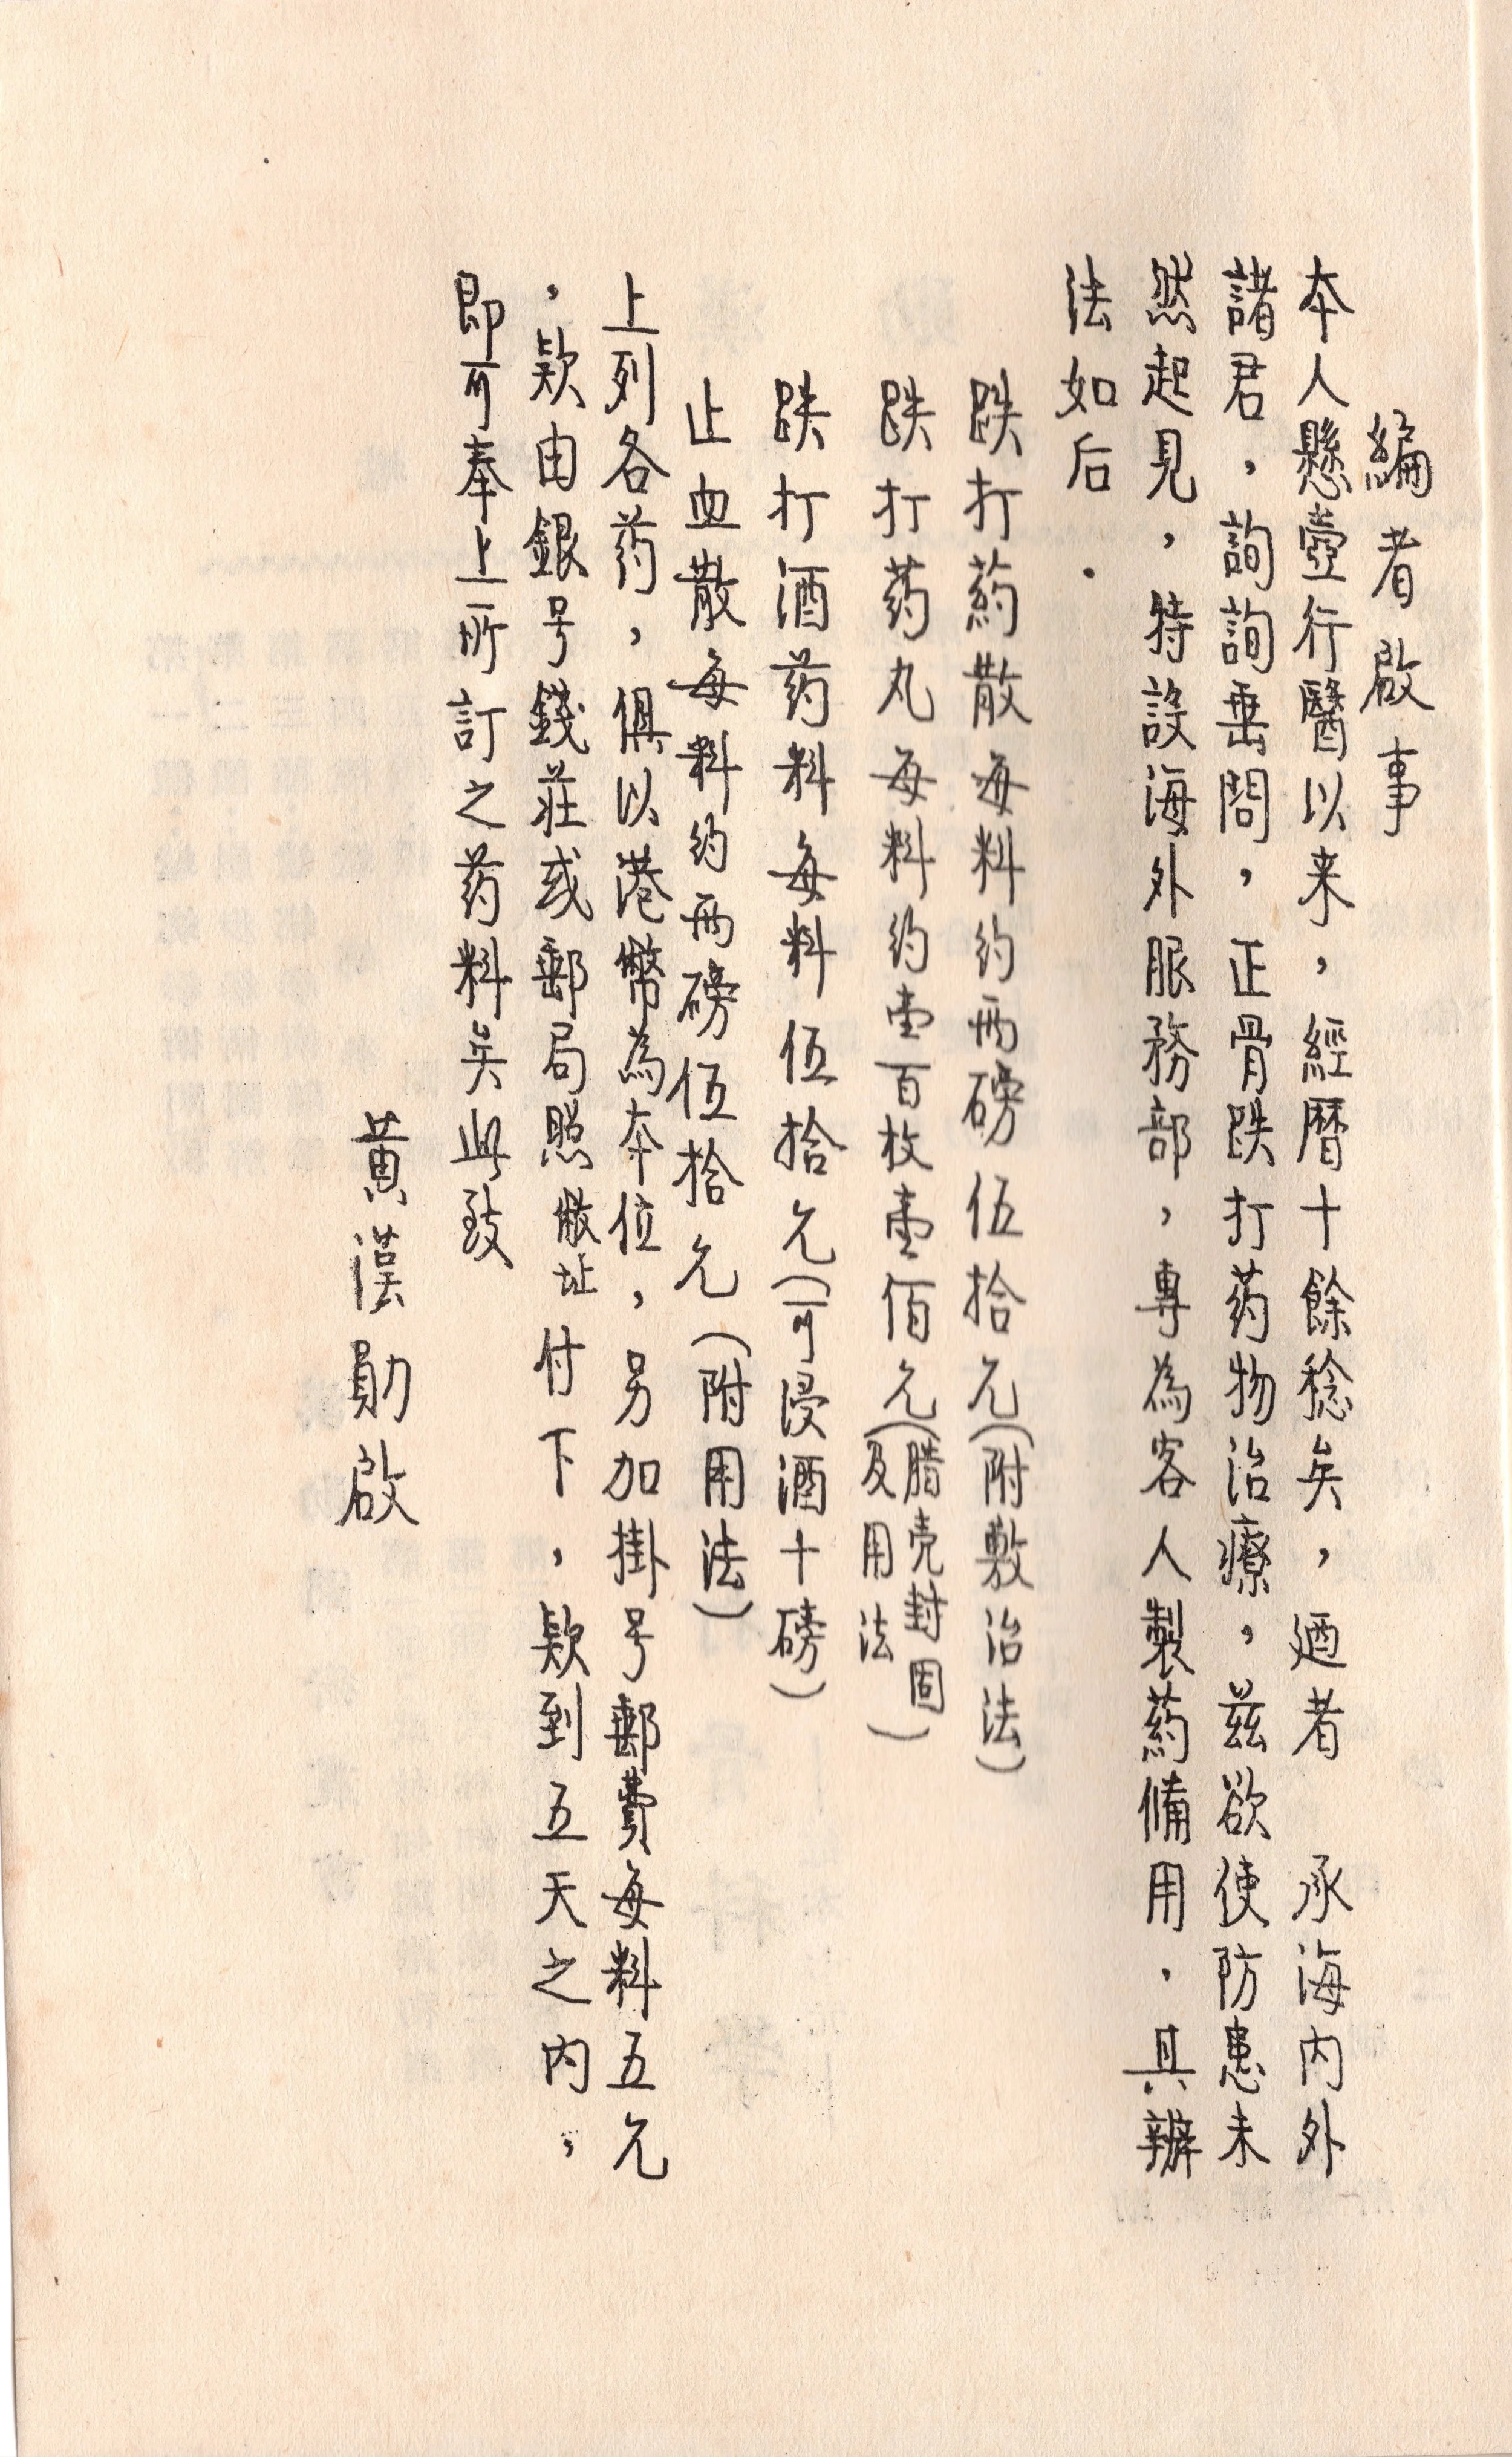 編者啟事
本人懸壺行醫以来，經曆十餘稔矣，迺者　承海内外
諸君，詢詢垂問，正骨跌打药物治療，茲欲使防患未
然起見，特設海外服務部，專為客人製葯備用．具辦
法如后．
跌打葯散每料約両磅伍拾元（附敷治法）
跌打药丸每料約壹百枚壹佰元（腊壳封固及用法）
跌打酒药料每料伍拾元（可浸酒十磅）
止血散每料約両磅伍拾元（附用法）
上列各药，俱以港幣為本位，另加掛号郵費每料五元
，欵由銀号錢莊或郵局照繳址付下，欵到五天之内，
即可奉上所訂之药料矣此致
黄漢勛啟